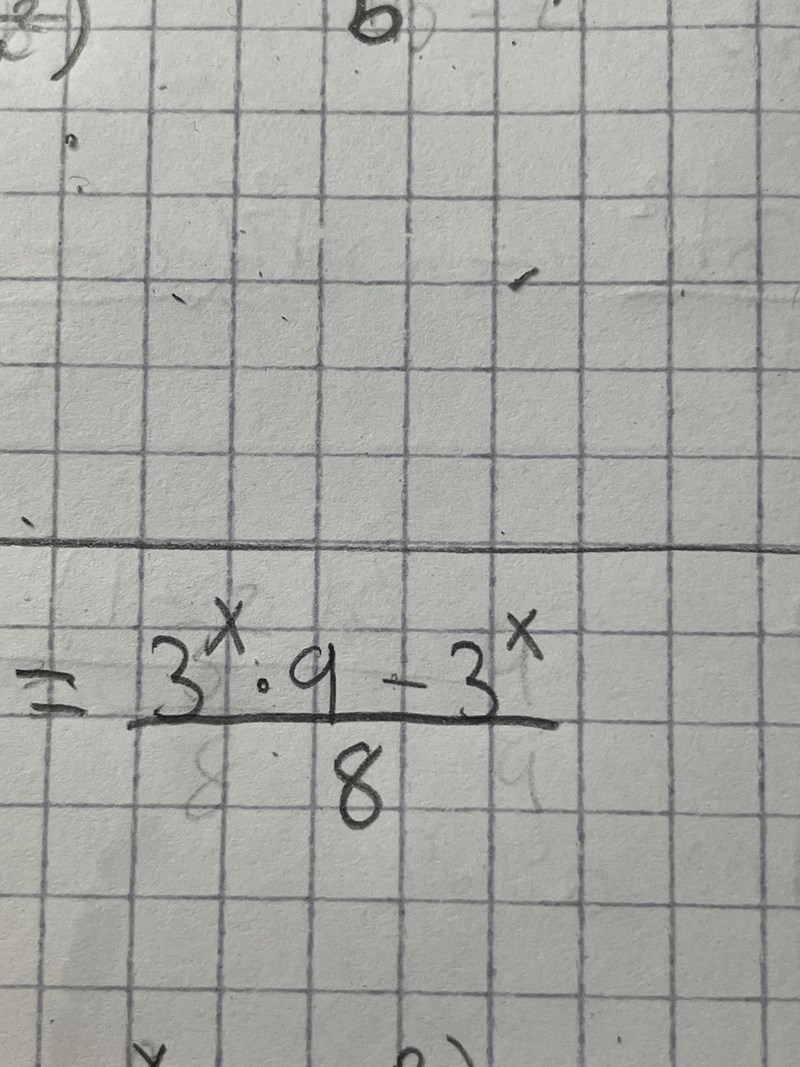 b
= (3^x · 9 - 3^x) / 8